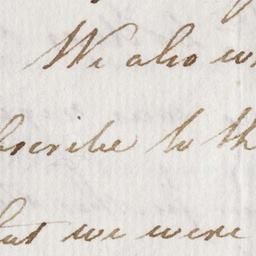 We also w
bscribe to th
but we were